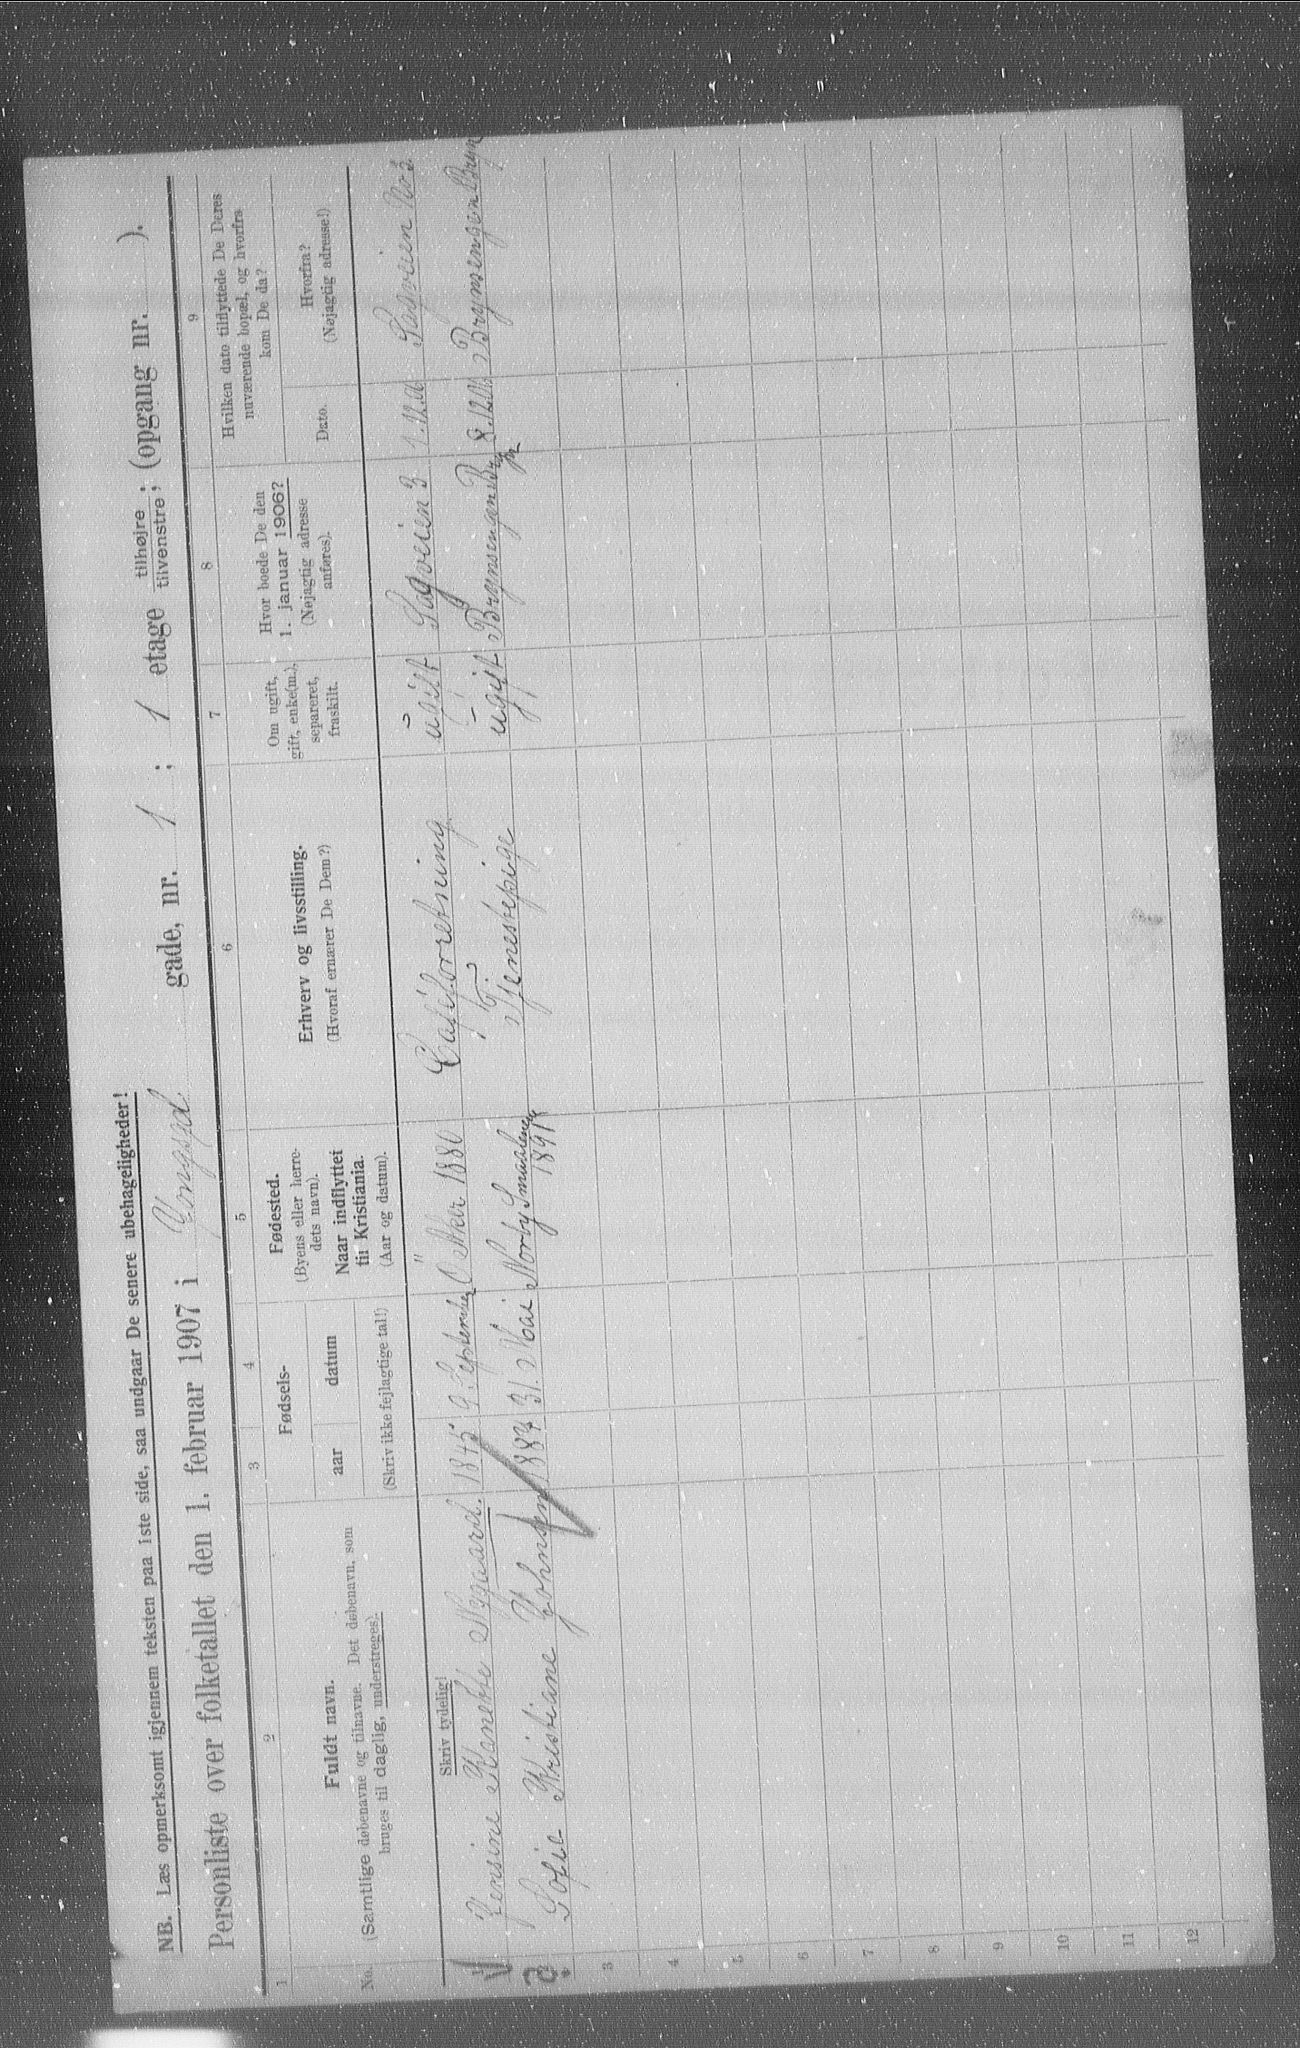 NB. Læs opmerksomt igjennem teksten paa 1ste side, saa undgaar De senere ubehageligheder!
Personliste over folketallet den 1. februar 1907 i gade, nr. 1 ; 1 etage tilhøjre, tilvenstre; (opgang nr. ).
1 2 3 4 5 6 7 8 9
No.
Fuldt navn.
(Samtlige døbenavne og tilnavne. Det døbenavn, som
bruges til daglig, understreges).
Fødsels-
aar datum
(Skriv ikke fejlagtige tal!)
Fødested.
(Byens eller herre-
dets navn).
Naar indflyttet
til Kristiania.
(Aar og datum).
Erhverv og livsstilling.
(Hvoraf ernærer De Dem?)
Om ugift,
gift, enke(m.),
separeret,
fraskilt.
Hvor boede De den
1. januar 1906?
(Nøjagtig adresse
anføres).
Hvilken dato tilflyttede De Deres
nuværende bopæl, og hvorfra
kom De da?
Dato.
Hvorfra?
(Nøjagtig adresse!)
Skriv tydelig!
"
1 Jensine Hanette Nygaard. 1845 9 September Ø Aker 1880 Caféforretning ugift Sagveien 3 1.12.06 Sagveien No 3
2 Sofie Kristiane Johnsen 1887 31. Mai Norby Smaalenene 1891 Tjenestepige ugift Brynsengen Bryn Brynsengen Bryn
3
4
5
6
7
8
9
10
11
12